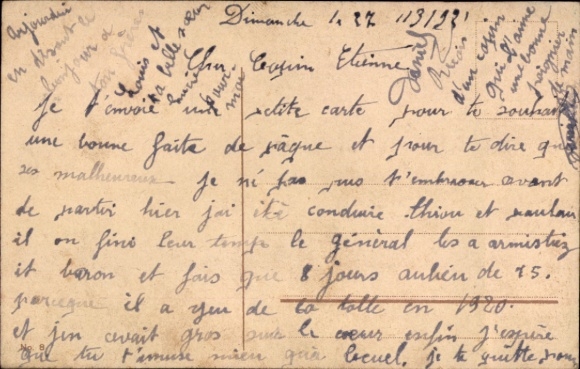 Dimanche le 27 /3/21
Cher Cosin Etienne
Je t'envoie une petite carte pour te souhaiter
une bonne faite de pâque et pour te dire que
ses malheureux je né pas pus t'embrasser avant
de partir hier j'ai été conduire et
il on fini leur temps le général les a armistiez
it baron et fais que 8 jours aulieu de 15.
parceque il a yeu de la tolle en 1920.
et j'en avait gros sur le cœur enfin j'espère
que tu t'amuse mieu qu'a je te quitte
en disant le
bonjour a
ton frères
Louis et
ta belle sœur
Reçois
d'un cosin
qui t'aime
une bonne
poignier
de main
Daniel
No 8